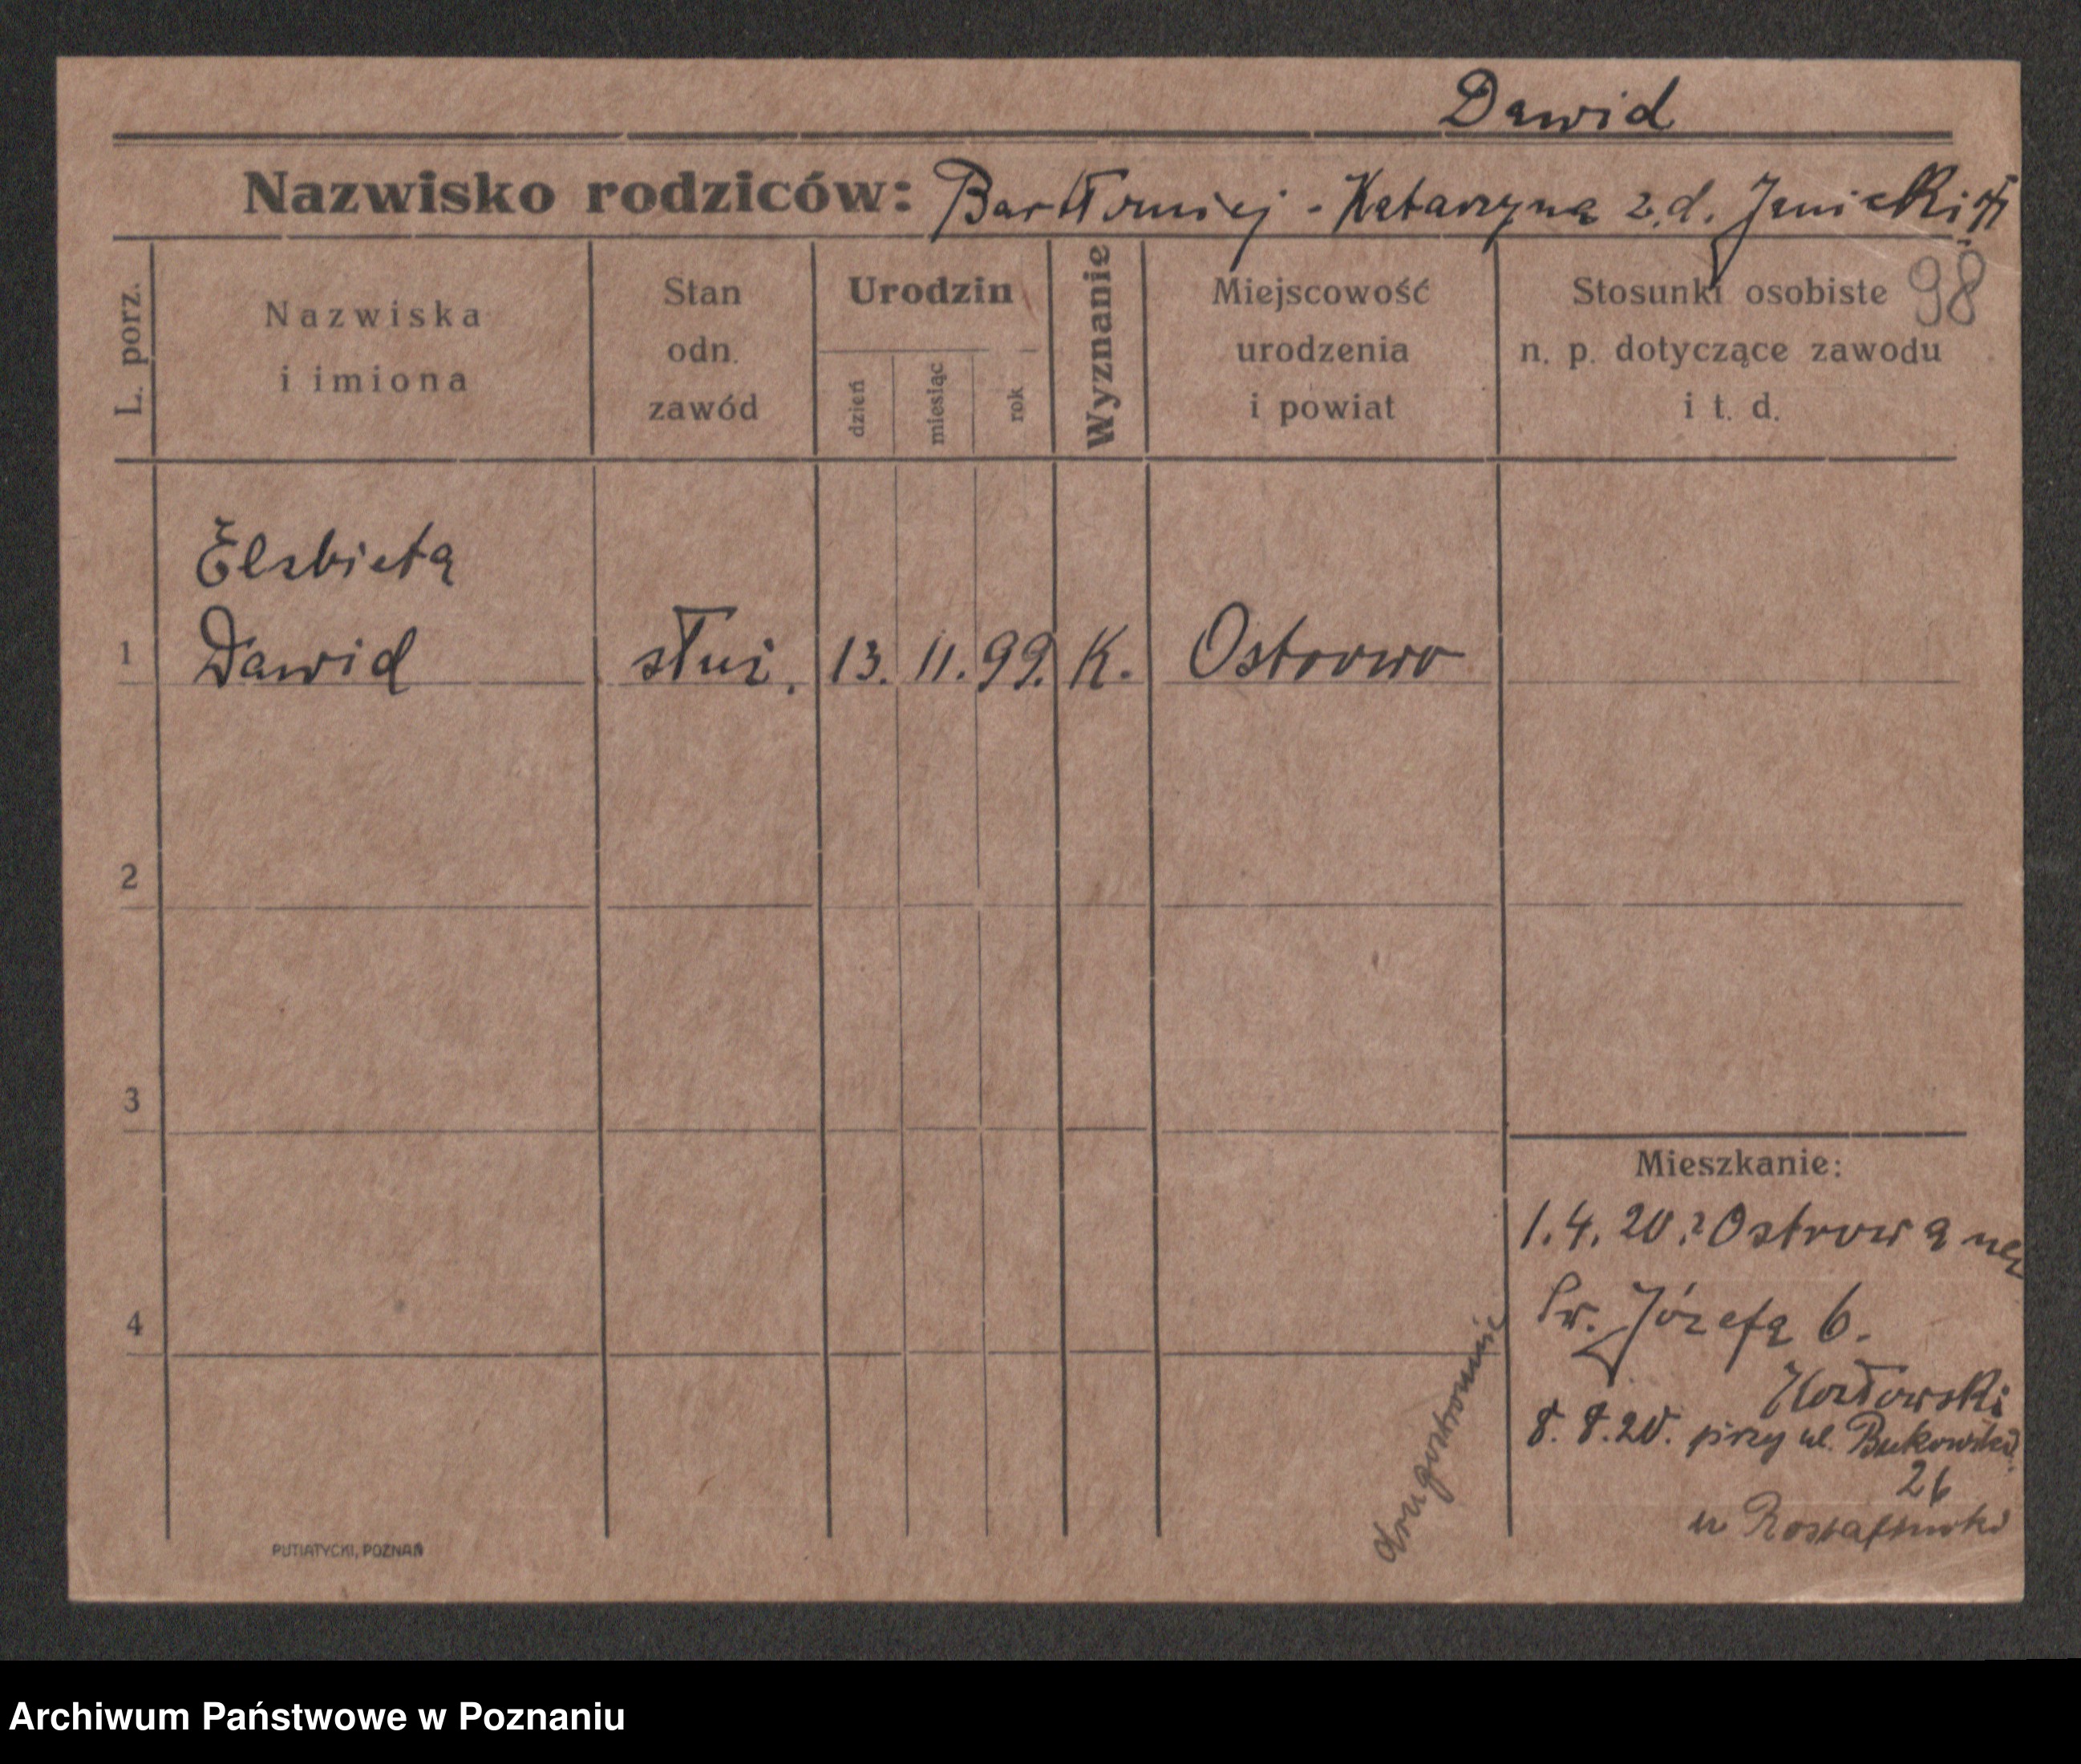 Dawid
Nazwisko rodziców: Bartłomiej - Katarzyna z.d. Janicki
98
L. porz.
Nazwiska
i imiona
Stan
odn.
zawód
Urodzin
dzień
miesiąc
rok
Wyznanie
Miejscowość
urodzenia
i powiat
Stosunki osobiste
n. p. dotyczące zawodu
i t. d.
Elzbieta
1 Dawid służ. 13. 11. 99. K. Ostrowo
2
3
Mieszkanie:
1. 4. 20. z Ostrowa na
4
Św. Józefa 6.
Kozłowski
8. 8. 20. przy ul. Bukowskiej
26
u
drugostronnie
PUTIATYCKI, POZNAŃ
Archiwum Państwowe w Poznaniu